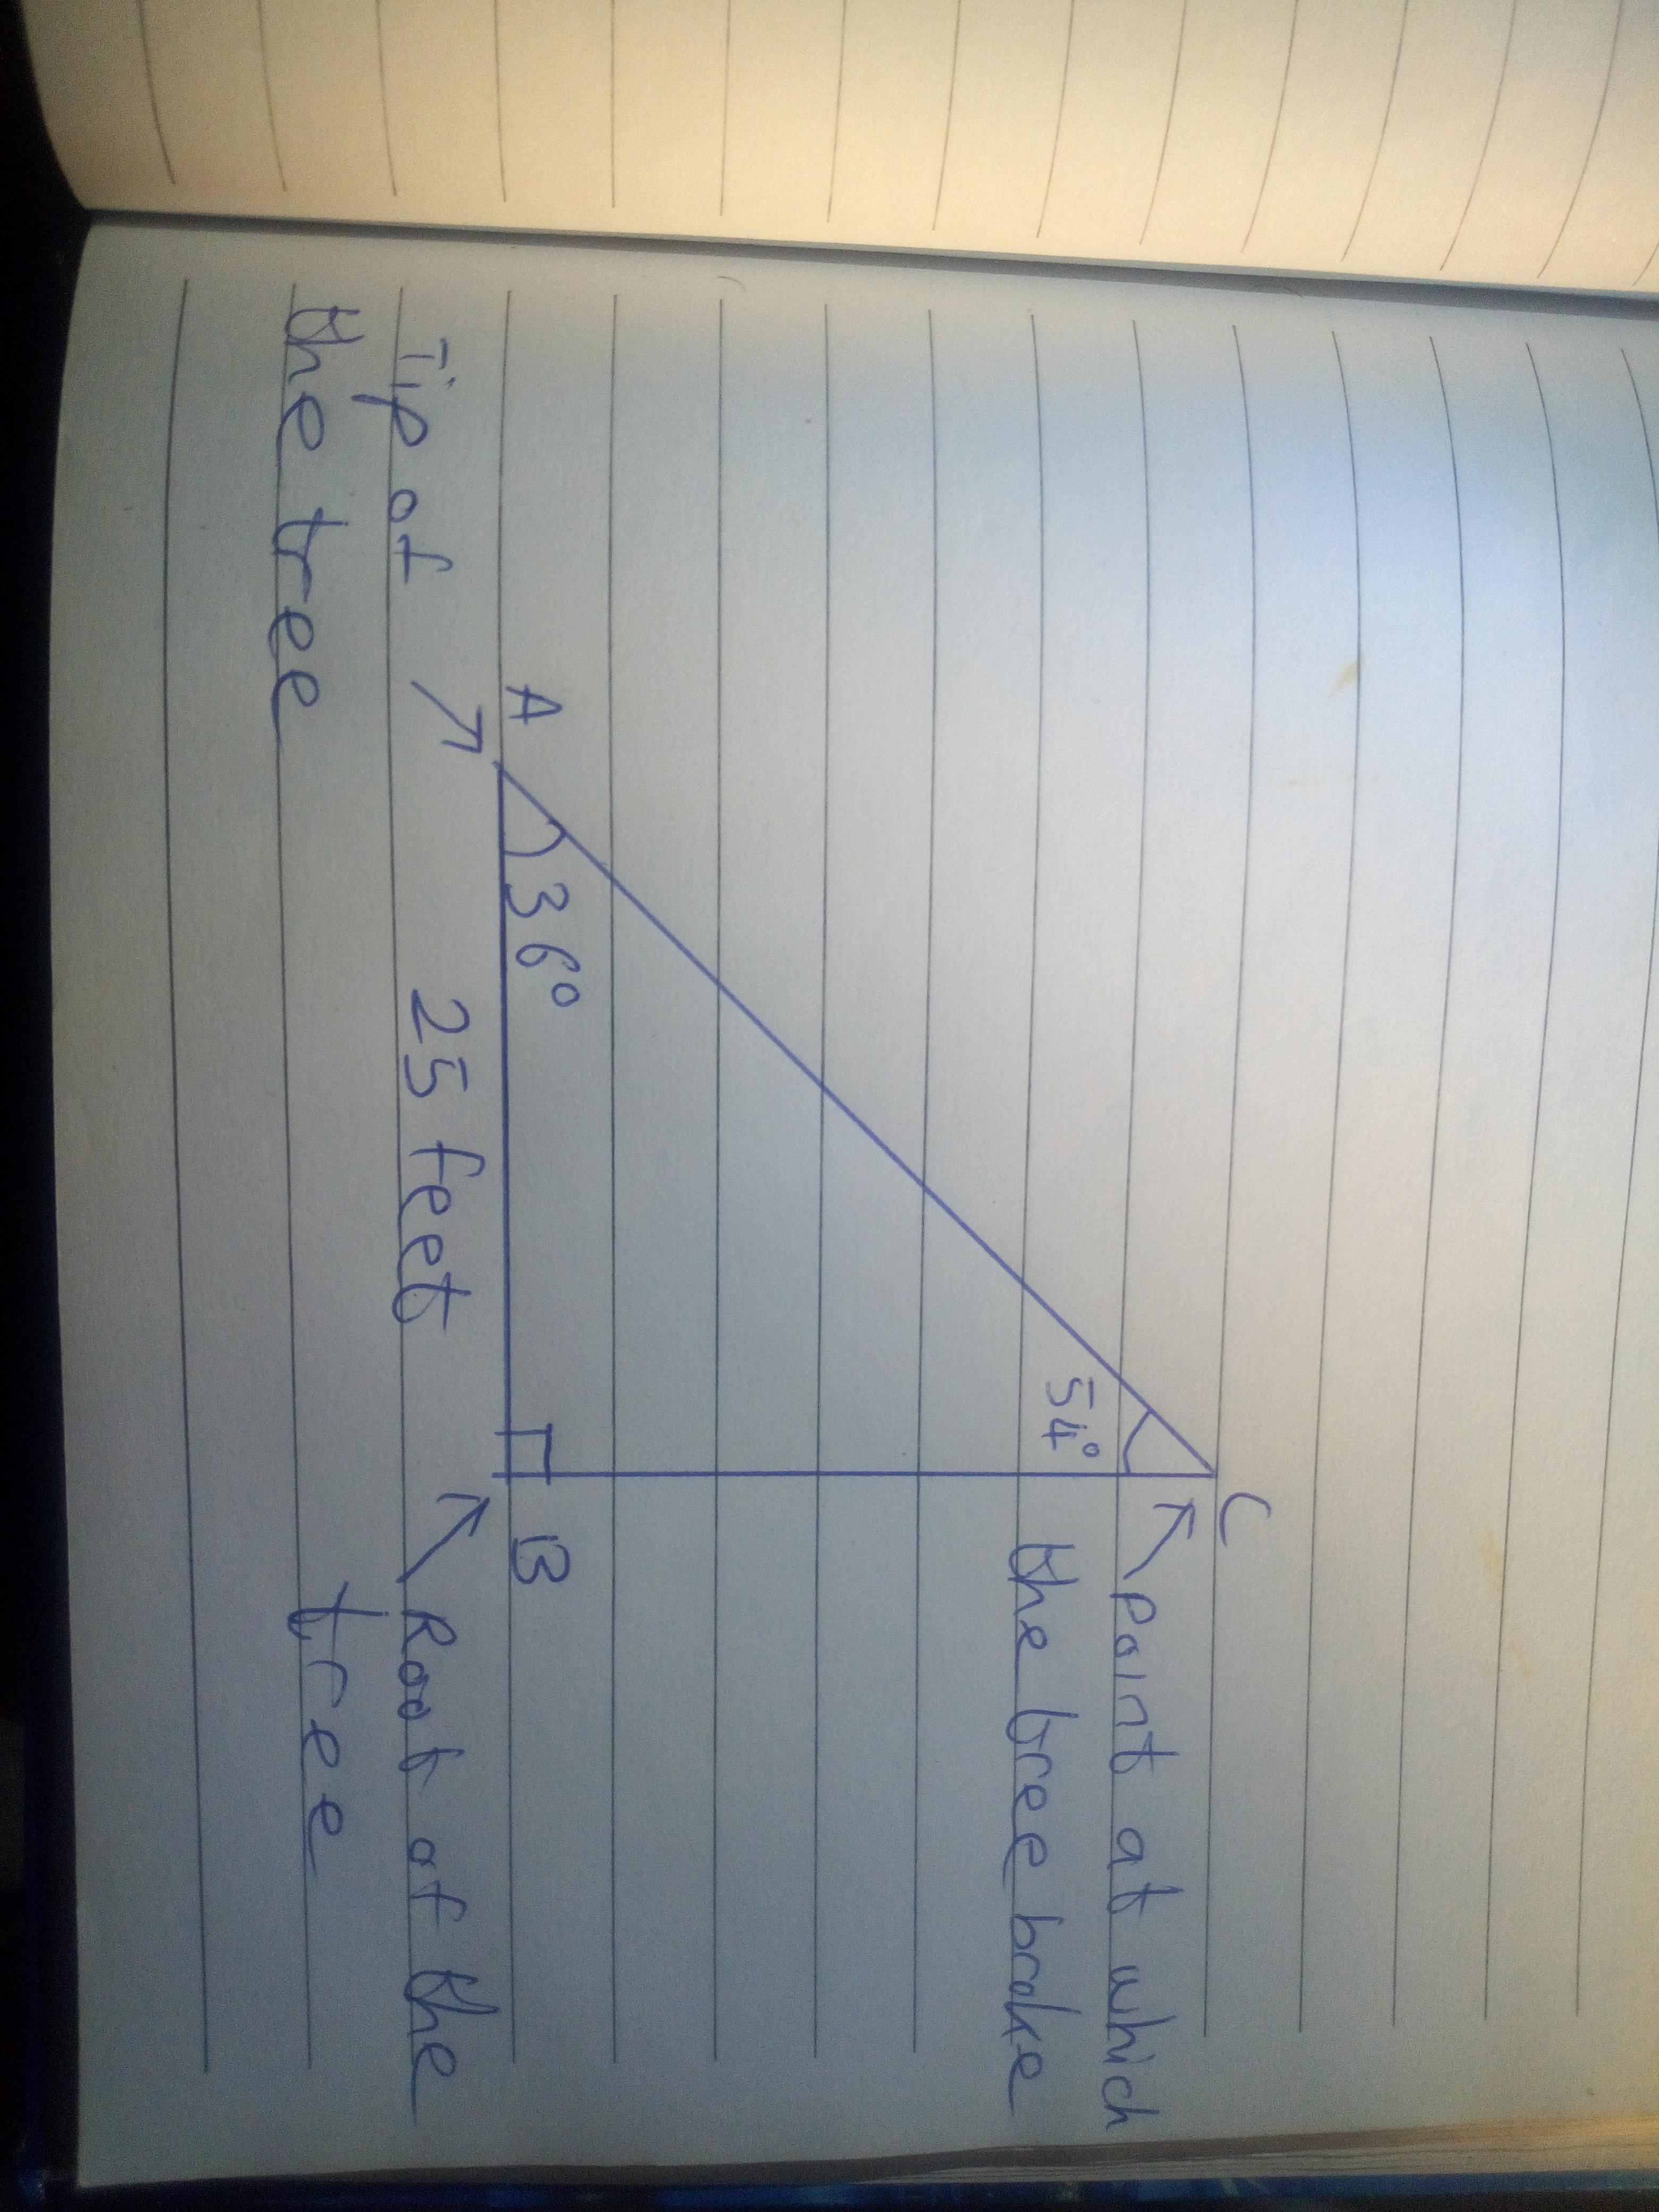 C
Point at which
the tree brake
54°
A
36°
B
25 feet
Tip of
the tree
Root of the
tree